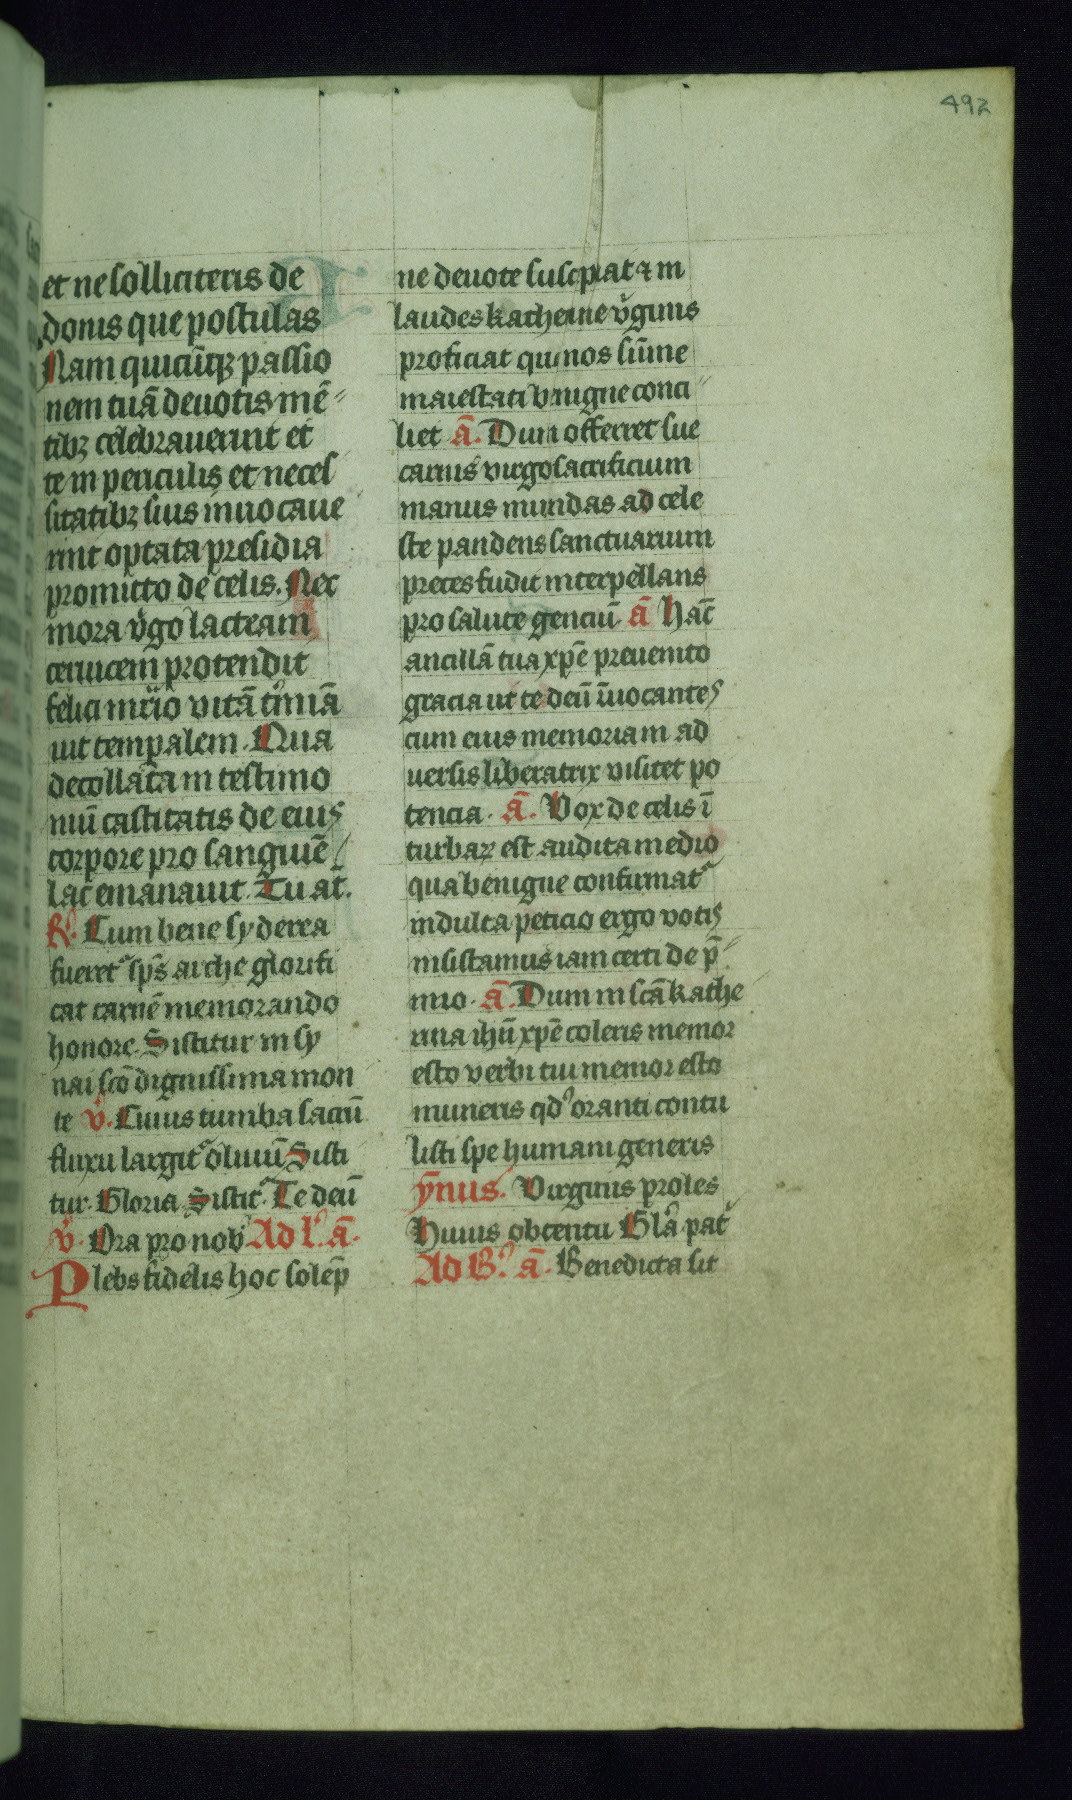 492
et ne solliciteris de
donis que postulas
Nam quicūqꝫ passio
nem tuā deuotis mē
tibꝫ celebrauerint et
te in periculis et neces
sitatibꝫ suis inuocaue
rint optata presidia
promitto de celis. Nec
mora v̊go lacteam
ceruicem protendit
felici mr̄io vitā t̉miā
uit temꝑalem. Qua
decollata in testimo
niū castitatis de eius
corpore pro sanguīe
lac emanauit. Tu at̄.
R̉. Cum bene syderea
fueret᷑ sp̄s arche glorifi
cat carnē memorando
honore. Sistitur in sy
nai scō dignissima mon
te v̉. Cuius tumba sacrū
fluxu largit᷑ oliuū Sisti
tur. Gloria. Sistit᷑ Te deū
v̉. Ora pro nob̉ Ad l᷒. ā.
Plebs fidelis hoc solēp
ne deuote suscipiat ⁊ in
laudes katherine v̊ginis
proficiat qui nos sūme
maiestati benigne conci
liet ā. Dum offerret sue
carnis virgo sacrificium
manus mundas ad cele
ste pandens sanctuarium
preces fudit interpellans
pro salute genciū ā Hac̄
ancillā tua xp̄e preuenito
gracia ut te deū īuocantes
cum eius memoriam ad
uersis liberatrix visitet po
tencia. ā. Vox de celis ī
turbaꝝ est audita medio
qua benigne confirmat᷑
indulta peticio ergo votis
insistamus iam certi de p̄
mio. ā. Dum in scā kathe
rina ih̄u xp̄e coleris memor
esto verbi tui memor esto
muneris qd᷒ oranti contu
listi spe humani generis
ȳnus. Virginis proles
Huius obtentu Gl̉a pat᷑
Ad B᷒. ā. Benedicta sit